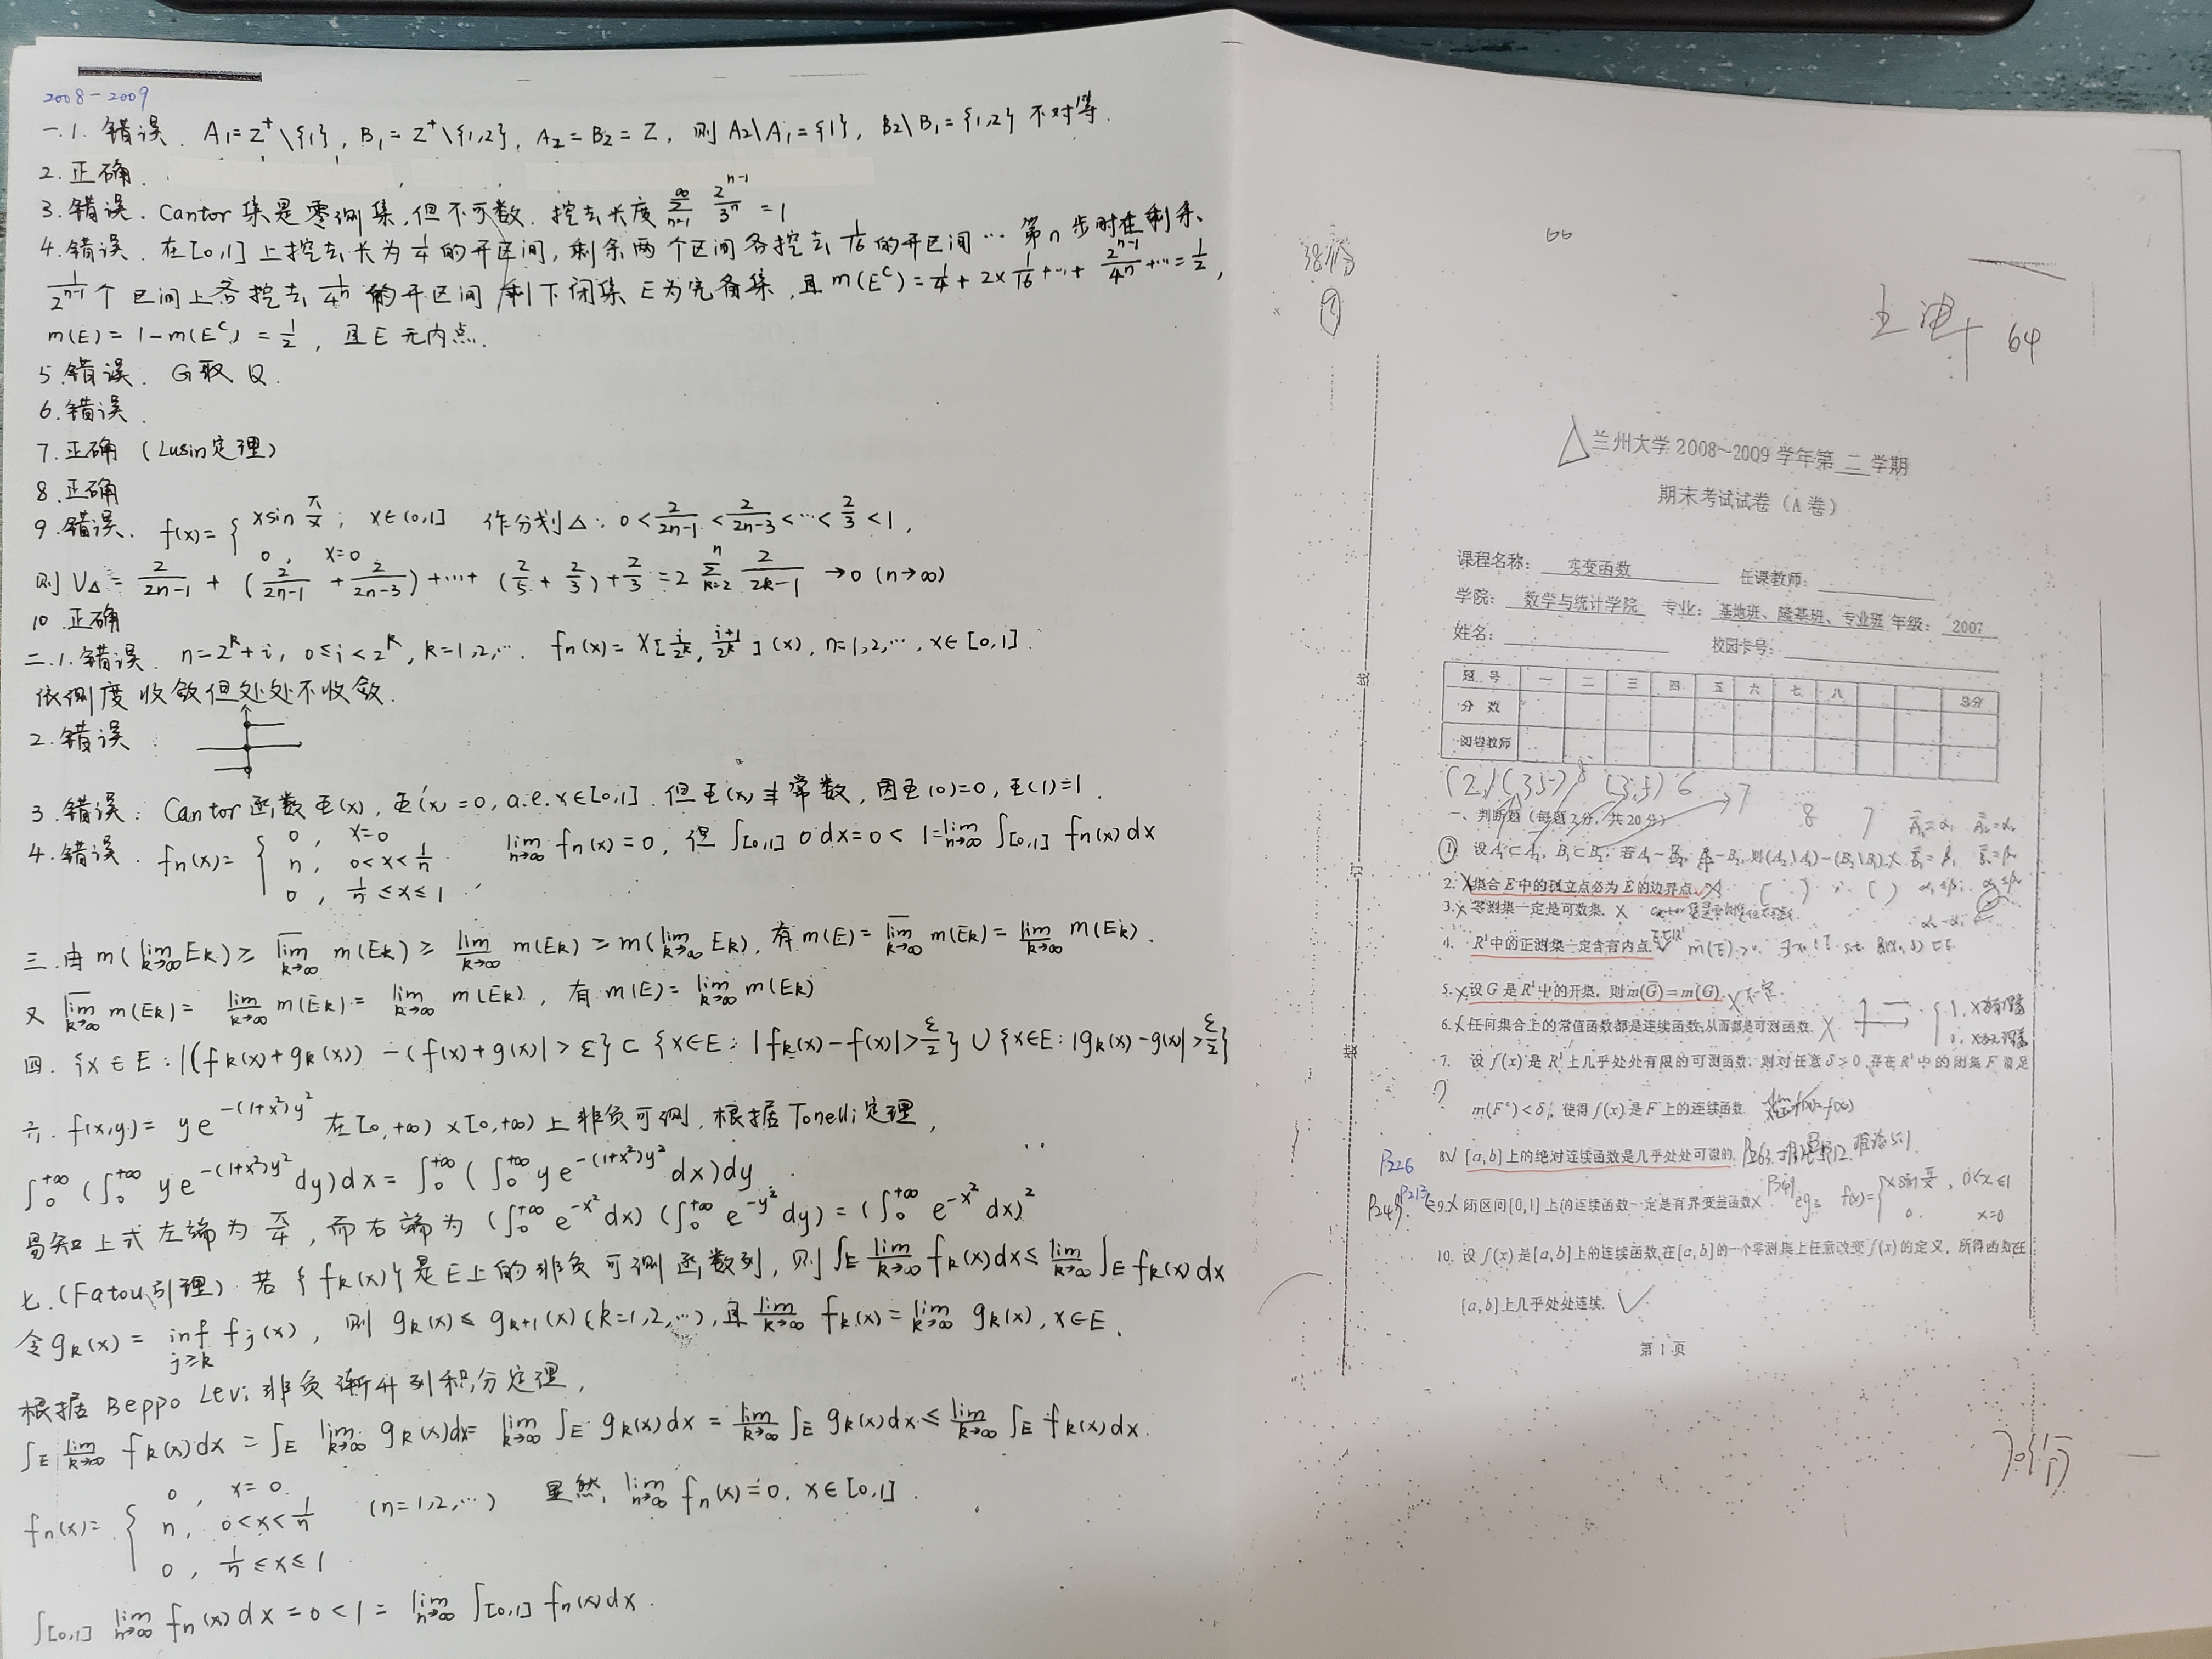 2008-2009
一.1. 错误. A₁=Z⁺\{1}, B₁=Z⁺\{1,2}, A₂=B₂=Z, 则 A₂\A₁={1}, B₂\B₁={1,2} 不对等.
2. 正确.
3. 错误. Cantor 集是零测集,但不可数. 挖去长度 ∑_{n=1}^{∞} 2^{n-1}/3^n = 1
4. 错误. 在[0,1]上挖去长为 1/4 的开区间, 剩余两个区间各挖去 1/16 的开区间 … 第n步时在剩余
1/2^{n-1} 个区间上各挖去 1/4^n 的开区间 剩下闭集 E为完备集, 且 m(E^c) = 1/4 + 2×1/16 +…+ 2^{n-1}/4^n +… = 1/2,
m(E) = 1-m(E^c) = 1/2, 且 E 无内点.
5. 错误. G取 Q.
6. 错误.
7. 正确 (Lusin定理)
8. 正确
9. 错误. f(x)= { x sin π/x, x∈(0,1] ; 0, x=0 作分划△: 0 < 2/(2n-1) < 2/(2n-3) <…< 2/3 < 1,
则 V△ = 2/(2n-1) + (2/(2n-1) + 2/(2n-3)) +…+ (2/5 + 2/3) + 2/3 = 2 ∑_{k=2}^{n} 2/(2k-1) → ∞ (n→∞)
10 正确
二.1. 错误. n=2^k+i, 0≤i<2^k, k=1,2,…. fn(x)= χ[i/2^k, (i+1)/2^k](x), n=1,2,…, x∈[0,1].
依测度收敛但处处不收敛.
2. 错误:
3. 错误: Cantor函数Φ(x), Φ'(x)=0, a.e. x∈[0,1]. 但Φ(x)非常数, 因Φ(0)=0, Φ(1)=1.
4. 错误. fn(x)= { 0, x=0 ; n, 0<x<1/n ; 0, 1/n≤x≤1. lim_{n→∞} fn(x)=0, 但 ∫[0,1] 0 dx=0 < 1=lim_{n→∞} ∫[0,1] fn(x)dx
三. 由 m(lim_{k→∞} Ek) ≥ \overline{lim}_{k→∞} m(Ek) ≥ \underline{lim}_{k→∞} m(Ek) ≥ m(\underline{lim}_{k→∞} Ek), 有 m(E)= \overline{lim}_{k→∞} m(Ek) = \underline{lim}_{k→∞} m(Ek).
又 \overline{lim}_{k→∞} m(Ek) = \underline{lim}_{k→∞} m(Ek) = lim_{k→∞} m(Ek), 有 m(E)= lim_{k→∞} m(Ek)
四. {x∈E: |(fk(x)+gk(x)) -(f(x)+g(x)| > ε} ⊂ {x∈E: |fk(x)-f(x)| > ε/2} ∪ {x∈E: |gk(x)-g(x)| > ε/2}
六. f(x,y) = y e^{-(1+x²)y²} 在[0,+∞)×[0,+∞)上非负可测, 根据Tonelli定理,
∫_0^{+∞} (∫_0^{+∞} y e^{-(1+x²)y²} dy)dx = ∫_0^{+∞} (∫_0^{+∞} y e^{-(1+x²)y²} dx)dy
易知上式左端为 π/4, 而右端为 (∫_0^{+∞} e^{-x²} dx)(∫_0^{+∞} e^{-y²} dy) = (∫_0^{+∞} e^{-x²} dx)²
七. (Fatou引理) 若 {fk(x)} 是E上的非负可测函数列, 则 ∫_E \underline{lim}_{k→∞} fk(x)dx ≤ \underline{lim}_{k→∞} ∫_E fk(x)dx
令 gk(x) = inf_{j≥k} fj(x), 则 gk(x) ≤ gk+1(x) (k=1,2,…), 且 \underline{lim}_{k→∞} fk(x) = lim_{k→∞} gk(x), x∈E.
根据 Beppo Levi 非负渐升列积分定理,
∫_E \underline{lim}_{k→∞} fk(x)dx = ∫_E lim_{k→∞} gk(x)dx = lim_{k→∞} ∫_E gk(x)dx = \underline{lim}_{k→∞} ∫_E gk(x)dx ≤ \underline{lim}_{k→∞} ∫_E fk(x)dx.
fn(x)= { 0, x=0. ; n, 0<x<1/n ; 0, 1/n≤x≤1 (n=1,2,…) 显然, lim_{n→∞} fn(x)=0, x∈[0,1].
∫[0,1] lim_{n→∞} fn(x)dx = 0 < 1 = lim_{n→∞} ∫[0,1] fn(x)dx.
66
64
兰州大学 2008~2009 学年第 二 学期
期末考试试卷（A 卷）
课程名称: 实变函数 任课教师:
学院: 数学与统计学院 专业: 基地班、隆基班、专业班 年级: 2007
姓名: 校园卡号:
题 号 一 二 三 四 五 六 七 八 总分
分 数
阅卷教师
(2,) (3,5) 8 (3,5) 6 7 8 7
一、判断题（每题 2 分，共 20 分）
① 设 A₁⊂A₂, B₁⊂B₂, 若 A₁~B₁, A₂~B₂, 则(A₂\A₁)~(B₂\B₁). ×
2. × 集合 E 中的孤立点必为 E 的边界点.
3. × 零测集一定是可数集. ×
4. R¹中的正测集一定含有内点. m(E)>0.
5. × 设 G 是 R¹中的开集, 则 m(G̅)=m(G). × 不一定.
6. × 任何集合上的常值函数都是连续函数, 从而都是可测函数. ×
7. 设 f(x) 是 R¹ 上几乎处处有限的可测函数, 则对任意 δ>0, 存在 R¹ 中的闭集 F 满足
? m(F^c)<δ, 使得 f(x) 是 F 上的连续函数.
P226 8√ [a,b] 上的绝对连续函数是几乎处处可微的. P263 推论5.1
P249 P213 9.× 闭区间[0,1]上的连续函数一定是有界变差函数 × eg3 f(x)= { x sin π/x, 0<x≤1 ; 0. x=0
10. 设 f(x) 是[a,b]上的连续函数, 在[a,b]的一个零测集上任意改变 f(x) 的定义, 所得函数在
[a,b]上几乎处处连续. √
第 1 页
装
订
线